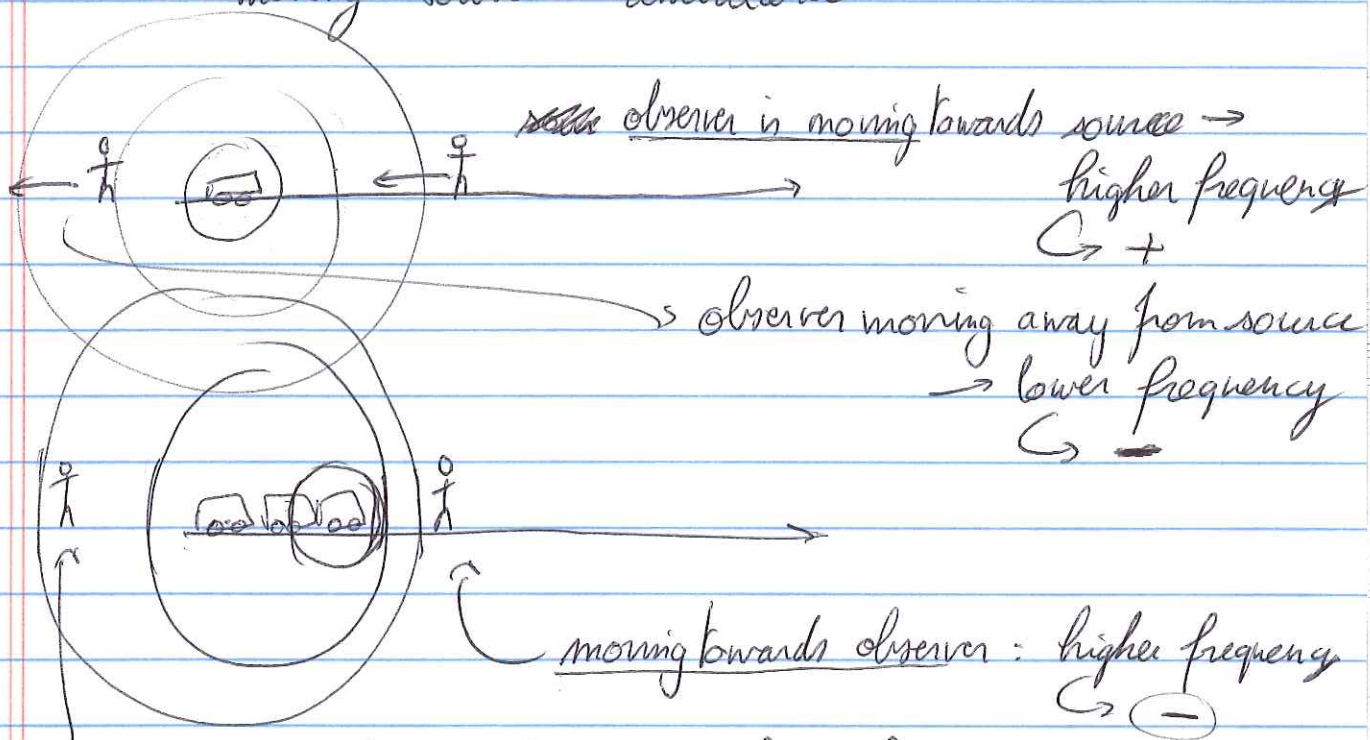 moving
observer is moving towards source →
higher frequency
↳ +
observer moving away from source
→ lower frequency
↳ -
moving towards observer : higher frequency
↳ -